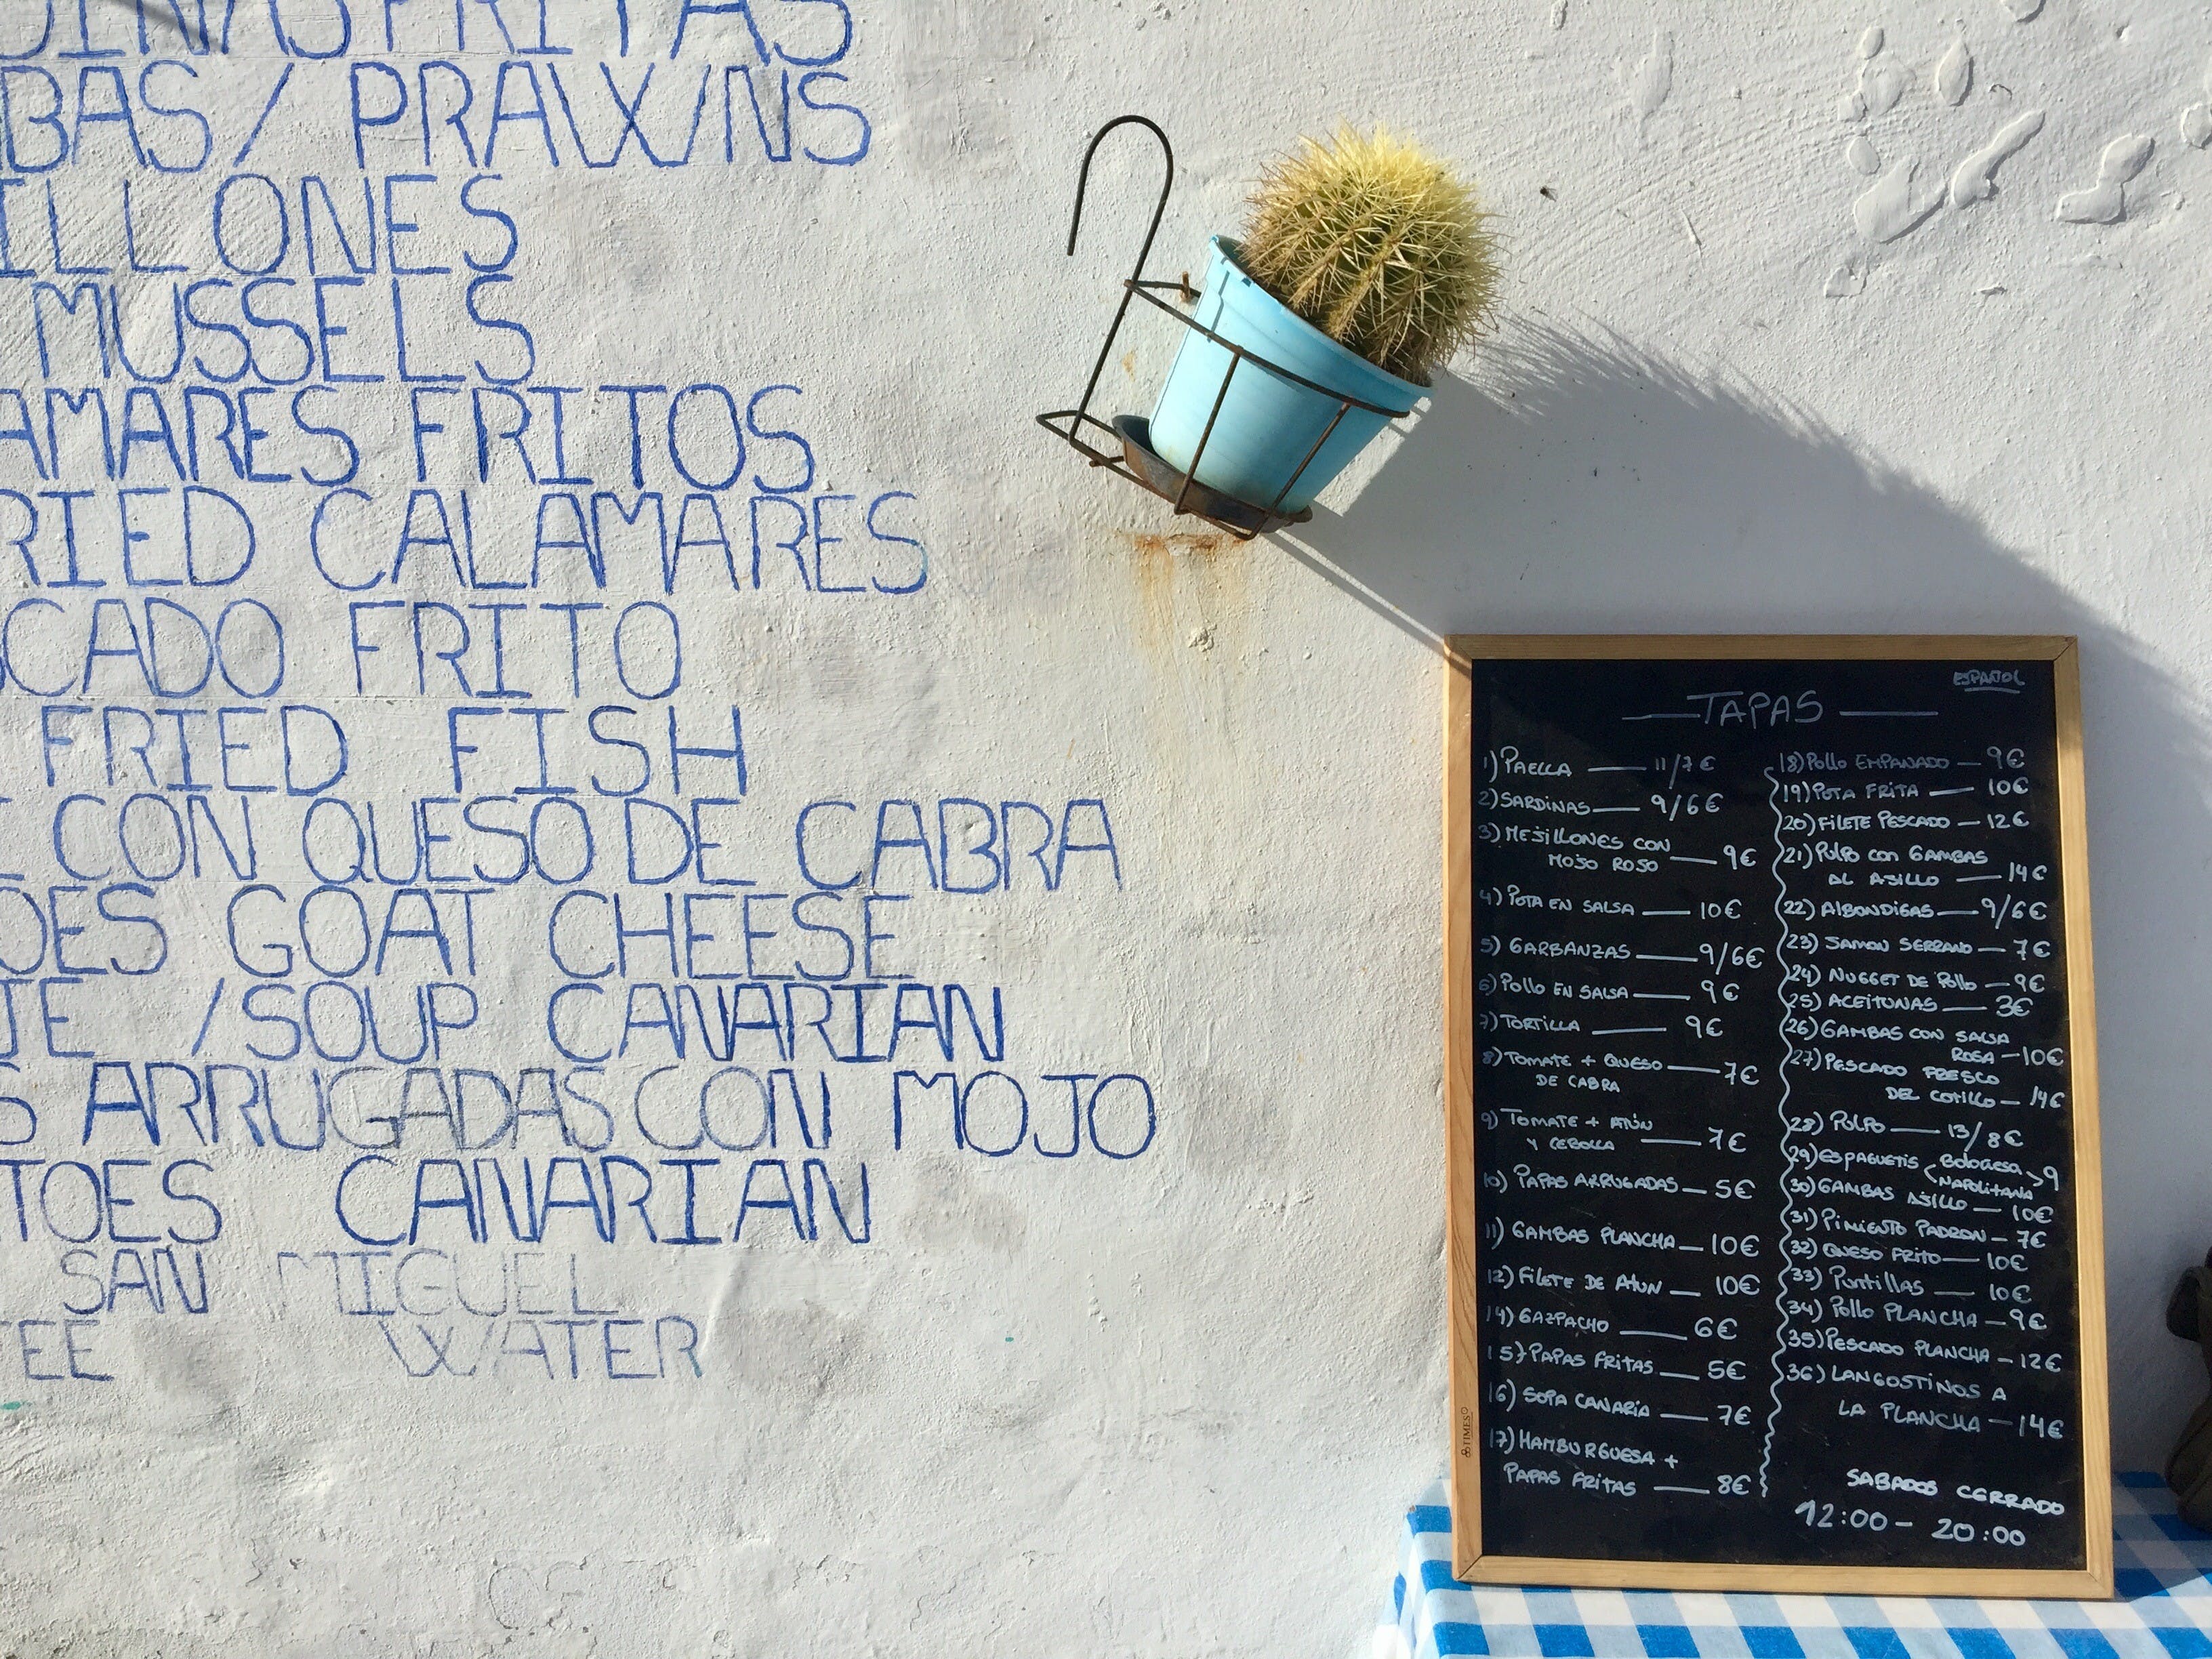 DINAS FRITAS
BAS / PRAWNS
ILLONES
MUSSELS
AMARES FRITOS
RIED CALAMARES
CADO FRITO
FRIED FISH
CON QUESO DE CABRA
OES GOAT CHEESE
JE /SOUP CANARIAN
S ARRUGADAS CON MOJO
TOES CANARIAN
SAN MIGUEL
EE WATER
ESPAÑOL
TAPAS
1) PAELLA 11/7€
2) SARDINAS 9/6€
3) MEJILLONES CON
MOJO ROJO 9€
4) POTA EN SALSA 10€
5) GARBANZAS 9/6€
6) POLLO EN SALSA 9€
7) TORTILLA 9€
8) TOMATE + QUESO
DE CABRA 7€
9) TOMATE + ATÚN
Y CEBOLLA 7€
10) PAPAS ARRUGADAS 5€
11) GAMBAS PLANCHA 10€
12) FILETE DE ATUN 10€
14) GAZPACHO 6€
15) PAPAS FRITAS 5€
16) SOPA CANARIA 7€
17) HAMBURGUESA +
PAPAS FRITAS 8€
18) POLLO EMPANADO 9€
19) POTA FRITA 10€
20) FILETE PESCADO 12€
21) PULPO CON GAMBAS
AL AJILLO 14€
22) ALBONDIGAS 9/6€
23) JAMON SERRANO 7€
24) NUGGET DE POLLO 9€
25) ACEITUNAS 3€
26) GAMBAS CON SALSA
ROSA 10€
27) PESCADO FRESCO
DEL COTILLO 14€
28) PULPO 13/8€
29) ESPAGUETIS BOLOGNESA 9
NAPOLITANA
30) GAMBAS AJILLO 10€
31) PIMIENTO PADRON 7€
32) QUESO FRITO 10€
33) PUNTILLAS 10€
34) POLLO PLANCHA 9€
35) PESCADO PLANCHA 12€
36) LANGOSTINOS A
LA PLANCHA 14€
SABADOS CERRADO
12:00 - 20:00
TIMES